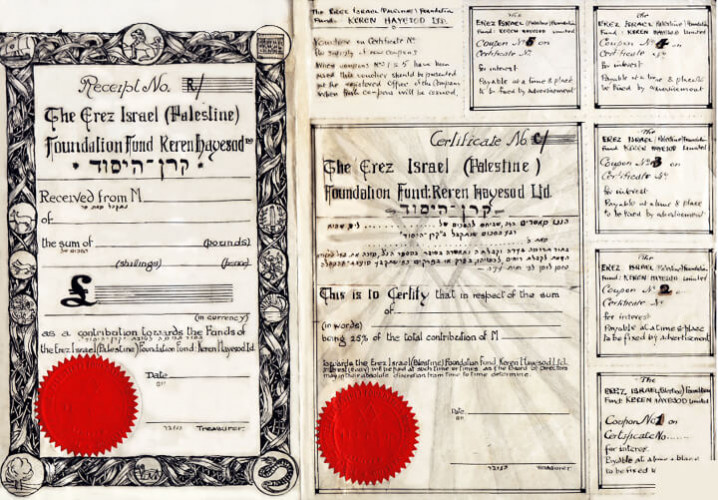 Receipt No. R/
The Erez Israel (Palestine)
Foundation Fund Keren Hayesod Ltd
קרן-היסוד
Received from M
of
the sum of (pounds)
(shillings) (pence)
£
(in currency)
as a contribution towards the Funds of
the Erez Israel (Palestine) Foundation Fund: Keren Hayesod Ltd.
Date
Treasurer.
The Erez Israel (Palestine) Foundation
Fund: KEREN HAYESOD Ltd.
Voucher on Certificate No
for supply of new coupons
When coupons Nos 1 to 5 have been
used this voucher should be presented
at the registered Office of the Company
when fresh coupons will be issued.
Certificate No C/
The Erez Israel (Palestine)
Foundation Fund: Keren Hayesod Ltd.
קרן-היסוד
This is to Certify that in respect of the sum
of
(in words)
being 25% of the total contribution of M
towards the Erez Israel (Palestine) Foundation Fund Keren Hayesod Ltd.
interest (if any) will be paid at such time or times as the Board of Directors
may in their absolute discretion from time to time determine.
Date
Treasurer
The
EREZ ISRAEL (Palestine) Foundation
Fund: KEREN HAYESOD Limited
Coupon No 5 on
Certificate No
for interest
Payable at a time & place
to be fixed by advertisement
The
EREZ ISRAEL (Palestine) Foundation
Fund: KEREN HAYESOD Limited
Coupon No 4 on
Certificate No
for interest
Payable at a time & place
to be fixed by advertisement
The
EREZ ISRAEL (Palestine) Foundation
Fund: KEREN HAYESOD Limited
Coupon No 3 on
Certificate No
for interest
Payable at a time & place
to be fixed by advertisement
The
EREZ ISRAEL (Palestine) Foundation
Fund: KEREN HAYESOD Limited
Coupon No 2 on
Certificate No
for interest
Payable at a time & place
to be fixed by advertisement
The
EREZ ISRAEL (Palestine) Foundation
Fund: KEREN HAYESOD Limited
Coupon No 1 on
Certificate No
for interest
Payable at a time & place
to be fixed